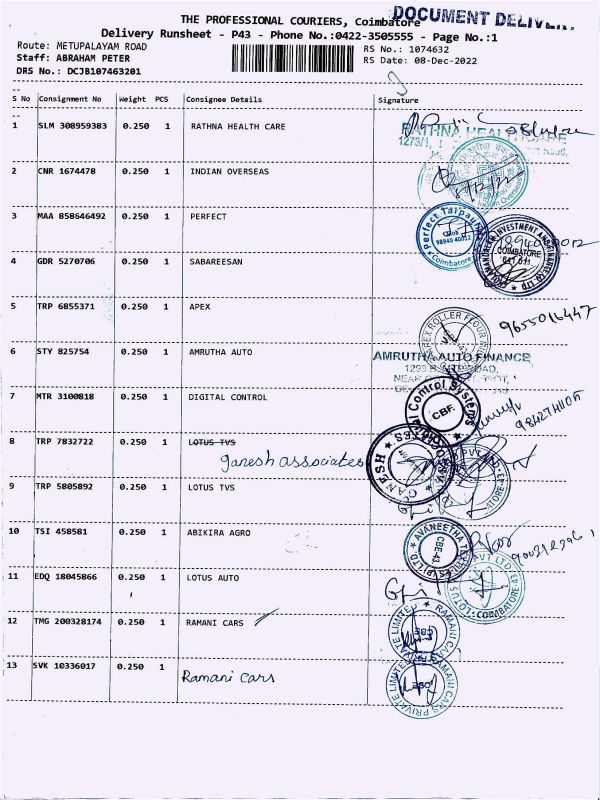 THE PROFESSIONAL COURIERS, Coimbatore
DOCUMENT DELIVERY
Delivery Runsheet - P43 - Phone No.:0422-3505555 - Page No.:1
Route: METUPALAYAM ROAD
RS No.: 1074632
Staff: ABRAHAM PETER
RS Date: 08-Dec-2022
DRS No.: DCJB107463201
S No Consignment No Weight PCS Consignee Details Signature
1 SLM 308959383 0.250 1 RATHNA HEALTH CARE
RATHNA HEALTHCARE
1273/1,
Road,
2 CNR 1674478 0.250 1 INDIAN OVERSEAS
3 MAA 858646492 0.250 1 PERFECT
Perfect Tarpaulin
98940 40012
Coimbatore
CHOLAMANDALAM INVESTMENT AND FINANCE CO LTD
COIMBATORE
641 011
4 GDR 5270706 0.250 1 SABAREESAN
5 TRP 6855371 0.250 1 APEX
9655016447
ROLLER FLOUR
6 STY 825754 0.250 1 AMRUTHA AUTO
AMRUTHA AUTO FINANCE
7 MTR 3100818 0.250 1 DIGITAL CONTROL
Control Systems
CBE.
9842741105
8 TRP 7832722 0.250 1 LOTUS TVS
Ganesh associates
GANESH
9 TRP 5805892 0.250 1 LOTUS TVS
10 TSI 458581 0.250 1 ABIKIRA AGRO
CBE-43
11 EDQ 18045866 0.250 1 LOTUS AUTO
LOTUS
PVT LTD
COIMBATORE-43
12 TMG 200328174 0.250 1 RAMANI CARS
RAMANI CARS PRIVATE LIMITED
CBE
13 SVK 10336017 0.250 1
Ramani Cars
RAMANI CARS PRIVATE LIMITED
CBE